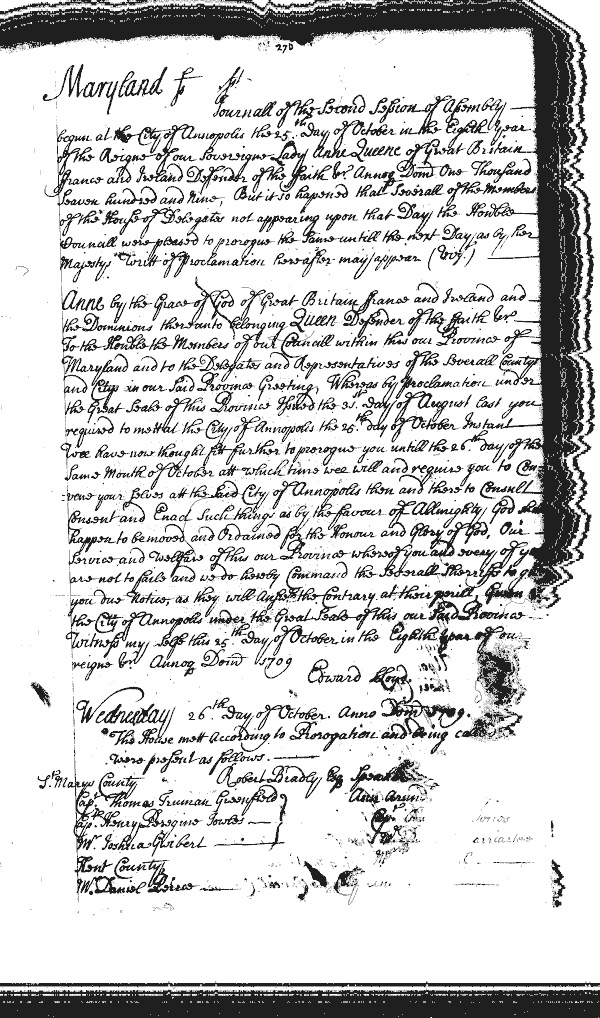 276
Maryland ss
Journall of the Second Session of Assembly
begun at the City of Annopolis the 25th Day of October in the Eighth year
of the Reigne of our Sovereigne Lady Anne Queene of Great Britain
france and Ireland Defender of the faith &c. Annoq Dom One Thousand
Seaven hundred and Nine, But it so hapened that Severall of the Members
of the House of Delegates not appearing upon that Day, the Honble
Councill were pleased to prorogue the Same untill the next Day, as by her
Majestys Writt of Proclamation hereafter may appear (Vizt.)
Anne by the Grace of God of Great Britain france and Ireland and
the Dominions thereunto belonging Queen Defender of the faith &c.
To the Honble the Members of our Councill within this our Province of
Maryland and to the Delegates and Representatives of the Severall County
and Citys in our Said Province Greeting, Whereas by Proclamation under
the Great Seale of this Province issued the day of August last you
required to mett at the City of Annopolis the 25th day of October Instant
Wee have now thought fit further to prorogue you untill the 26th day of the
Same Month of October att which time wee will and require you to Con
vene your Selves att the Said City of Annopolis then and there to Consult
Consent and Enact Such things as by the favour of Allmighty God shall
happen to be moved and Ordained for the Honour and Glory of God, Our
Service and Welfare of this our Province whereof you and every of you
are not to faile and we do hereby Command the Severall Sherriffs to
you due Notice, as they will Answer the Contrary at their perill, Given
the City of Annopolis under the Great Seale of this our Said Province
Witness my Selfe this 25th day of October in the Eighth year of our
reigne &c. Annoq Dom 1709
Edward Lloyd.
Wednesday 26th Day of October. Anno Dom 1709.
The House mett According to Prorogation and being
were present as follows.
Robert Bradly Esq Speaker
St. Marys County
Capt. Thomas Truman Greenfield
Capt. Henry Peregine Jowles
Mr. Joshua Guibert
Kent County
Mr. Daniel Peirce
Ann Arun
Capt.